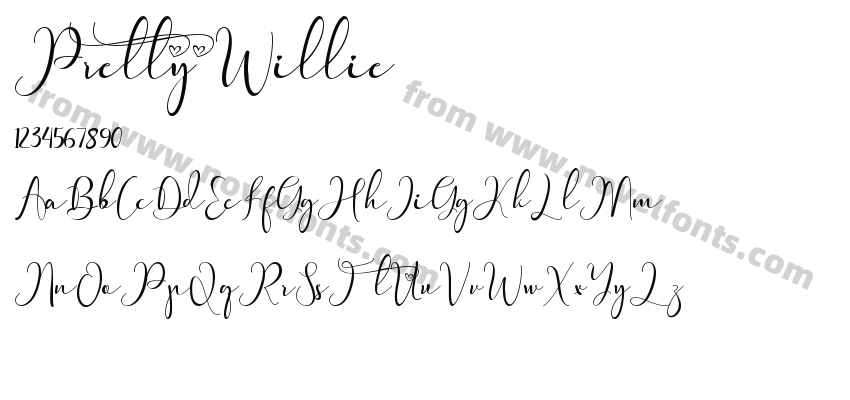 Pretty Willie
1234567890
AaBbCcDdEeFfGgHhIiGgKkLlMm
NnOoPpQqRrSsTtUuVvWwXxYyZz
from www.novelfonts.com
from www.novelfonts.com